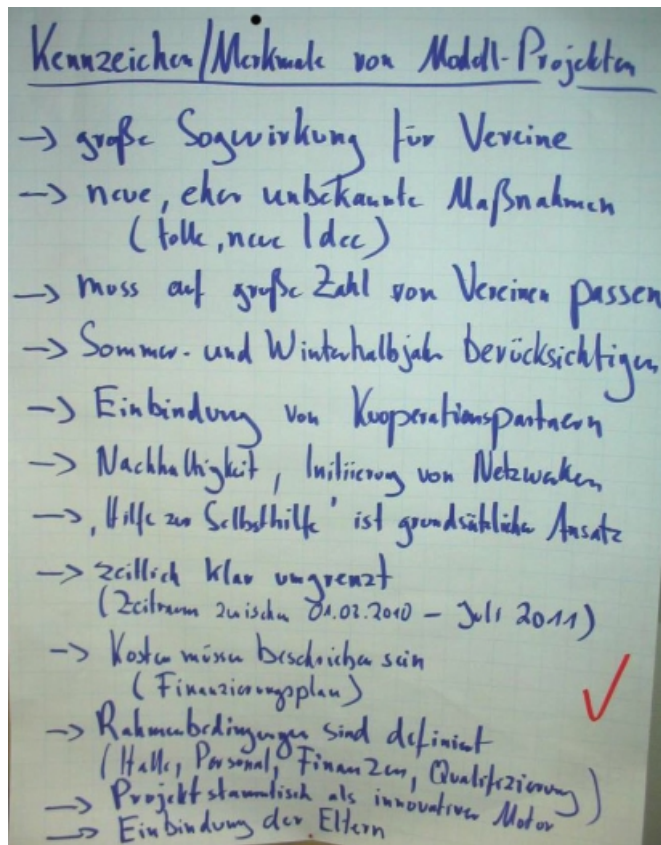 Kennzeichen/Merkmale von Modell-Projekten
→ große Sogwirkung für Vereine
→ neue, eher unbekannte Maßnahmen
(tolle, neue Idee)
→ muss auf große Zahl von Vereinen passen
→ Sommer- und Winterhalbjahr berücksichtigen
→ Einbindung von Kooperationspartnern
→ Nachhaltigkeit, Initiierung von Netzwerken
→ ‚Hilfe zur Selbsthilfe' ist grundsätzlicher Ansatz
→ zeitlich klar umgrenzt
(Zeitraum zwischen 01.02.2010 – Juli 2011)
→ Kosten müssen beschrieben sein
(Finanzierungsplan)
→ Rahmenbedingungen sind definiert
(Halle, Personal, Finanzen, Qualifizierung)
→ Projektstammtisch als innovativer Motor
→ Einbindung der Eltern